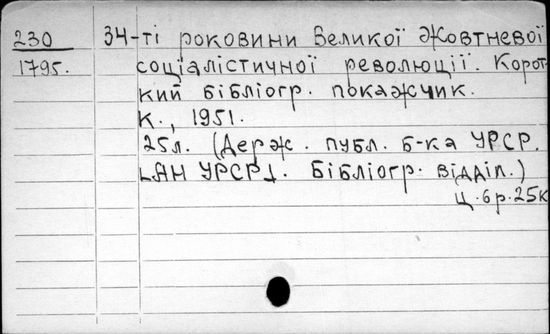 230 34-ті роковини Великої Жовтневої
1795. соціалістичної революції. Корот-
кий бібліогр. покажчик.
К., 1951.
25л. (Держ. публ. б-ка УРСР.
[АН УРСР]. Бібліогр. відділ.)
Ц. 6р. 25к